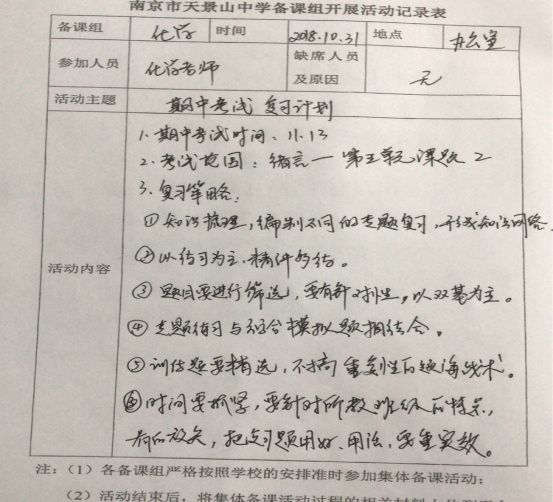 南京市天景山中学备课组开展活动记录表
备课组 化学 时间 2018.10.31 地点 办公室
参加人员 化学老师 缺席人员及原因 无
活动主题 期中考试复习计划
活动内容
1. 期中考试时间：11.13
2. 考试范围：绪言—第五单元课题2
3. 复习策略：
①知识梳理，编制不同的专题复习，形成知识网络。
②以练习为主，精讲多练。
③题目要进行筛选，要有针对性，以双基为主。
④专题练习与综合模拟题相结合。
⑤训练题要精选，不搞重复性的题海战术。
⑥时间要抓紧，要针对所教班级的特点，
有的放矢，把复习题用好、用活，要重实效。
注：（1）各备课组严格按照学校的安排准时参加集体备课活动；
（2）活动结束后，将集体备课活动过程的相关材料